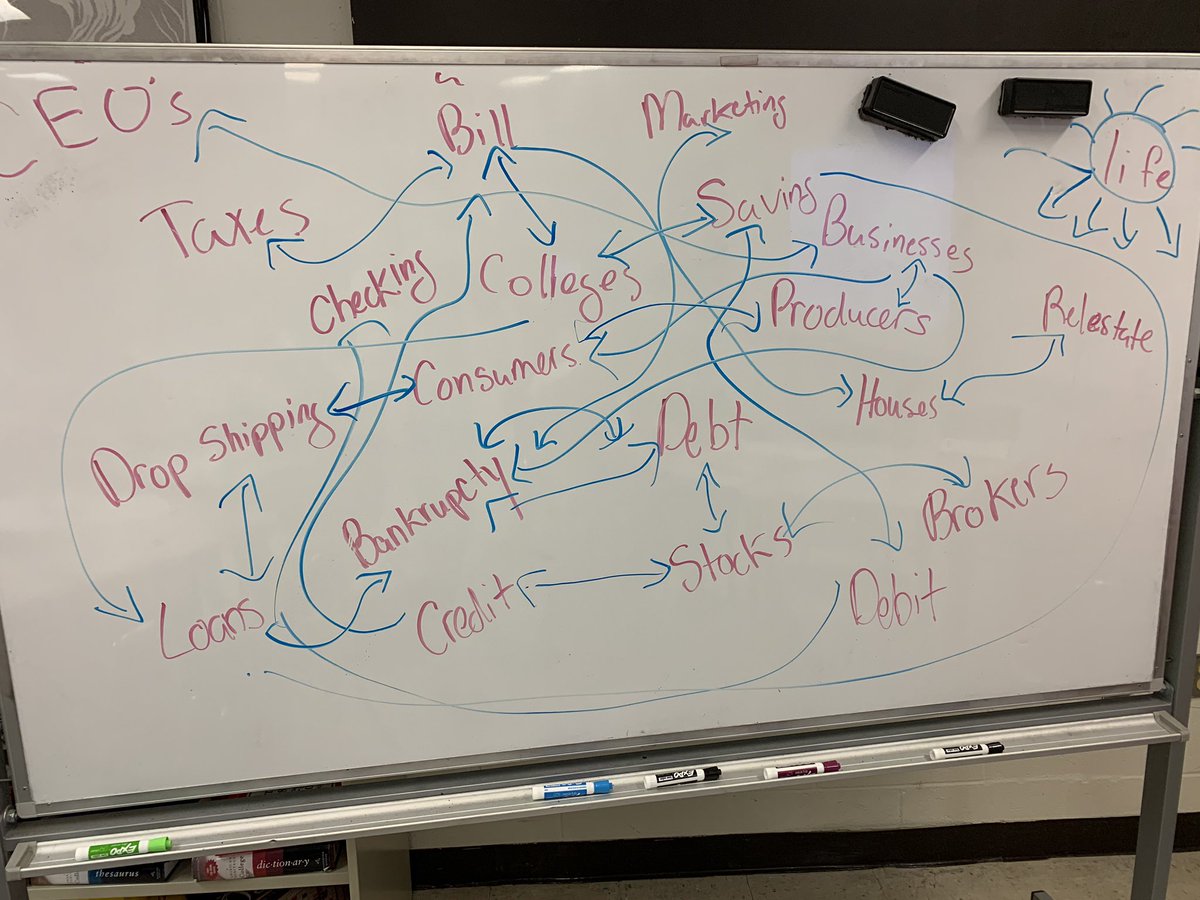 CEO's
Bill
Marketing
life
Taxes
Saving
Businesses
Checking
Colleges
Producers
Relestate
Consumers
Houses
Drop Shipping
Debt
Bankrupcty
Brokers
Stocks
Loans
Credit
Debit
EXPO
EXPO
EXPO
EXPO
thesaurus
dic·tion·ar·y